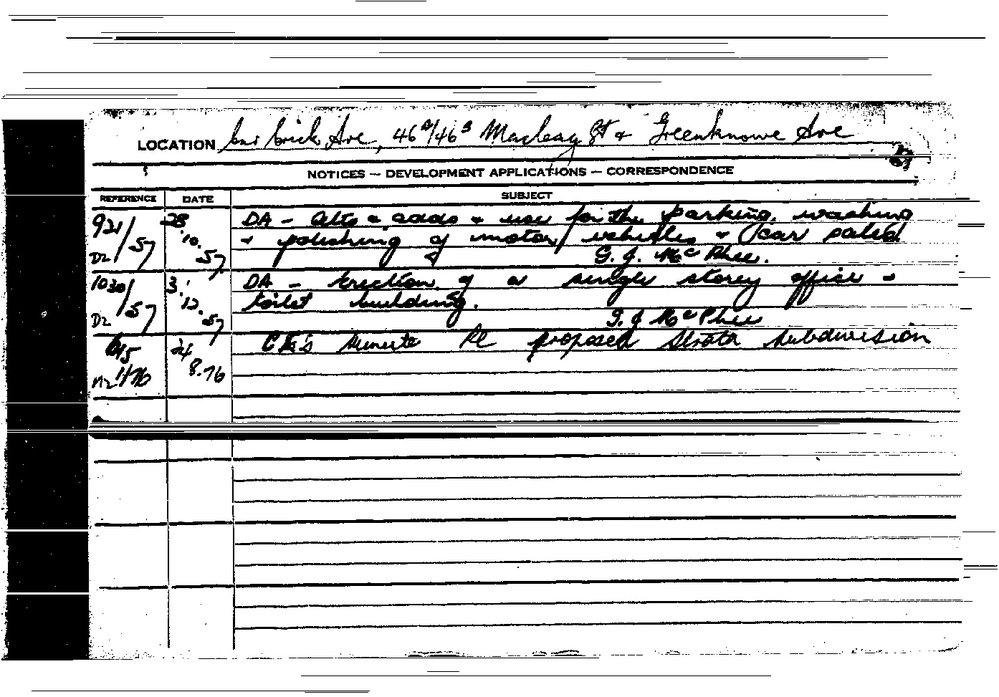 LOCATION brick Ave, 46ᴬ/46ᴮ Macleay St & Greenknowe Ave
NOTICES — DEVELOPMENT APPLICATIONS — CORRESPONDENCE
REFERENCE DATE SUBJECT
921/57 D2 28.10.57 DA - alts & adds & use for the parking, washing
& polishing of motor vehicles & car sales.
G. J. McPhee.
1030/57 D2 3.12.57 DA - Erection of a single storey office &
toilet building.
G. J McPhee
24.8.76 minute re proposed strata subdivision